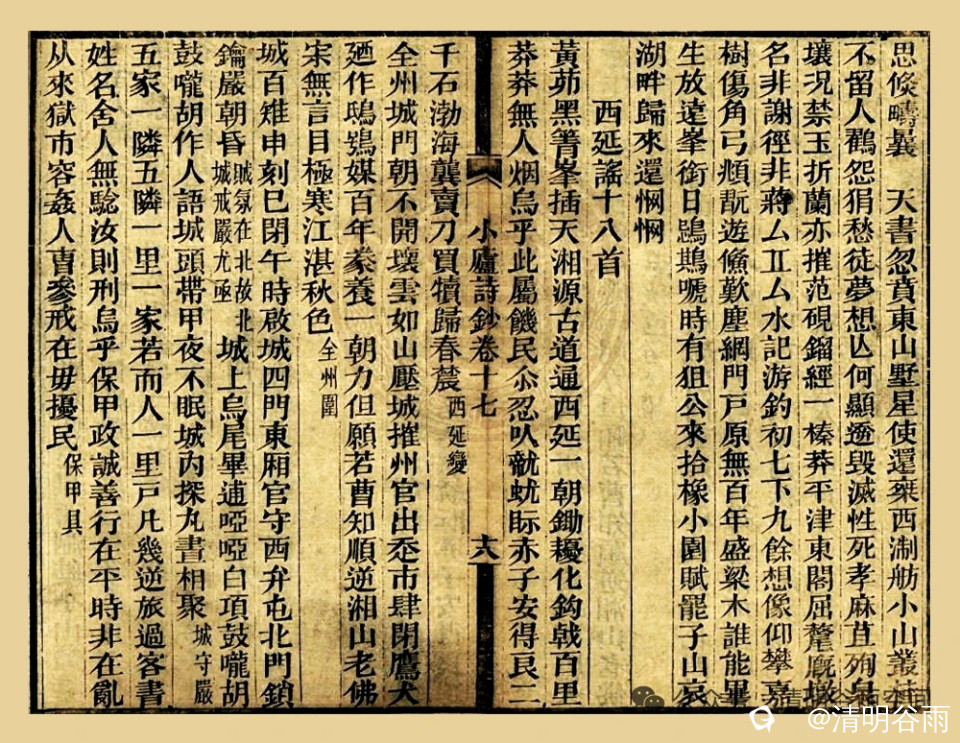 思倏疇曩　天書忽賁東山墅星使還棄西淛舫小山叢
不留人鸖怨狷愁徒夢想亾何顯遷毀滅性死孝麻苴殉
壤况禁玉折蘭亦摧范硯鎦經一榛莽平津東閣屈氂廐
名非謝徑非蔣厶𠀤厶水記游釣初七下九餘想像仰攀嘉
樹傷角弓頫翫遊鯈歎塵網門戶原無百年盛梁木誰能畢
生放遠峯銜日鵾鷑嗁時有狙公來拾橡小園賦罷子山哀
湖畔歸來還惘惘
西延謠十八首
黃茆黑箐峯插天湘源古道通西延一朝鋤耰化鈎戟百里
莽莽無人烟烏乎此屬饑民尒忍㕥虣蚘眎赤子安得良二
千石渤海龔賣刀買犢歸春蕽西延變
小廬詩鈔卷十七
十八
全州城門朝不開壞雲如山壓城摧州官出忝市肆閉鷹犬
廼作鴟鴞媒百年豢養一朝力但願若曹知順逆湘山老佛
宋無言目極寒江湛秋色全州圍
城百雉申刻已閉午時啟城四門東厢官守西弁屯北門鎖
鑰嚴朝昏賊氛在北故北城戒嚴尤亟城上烏尾畢逋啞啞白項鼓嚨胡
鼓嚨胡作人語城頭帶甲夜不眠城內探丸晝相聚城守嚴
五家一隣五隣一里一家若而人一里戶凡幾逆旅過客書
姓名舍人無騐汝則刑烏乎保甲政誠善行在平時非在亂
从來獄市容姦人𦾔參戒在毋擾民保甲具
@清明谷雨